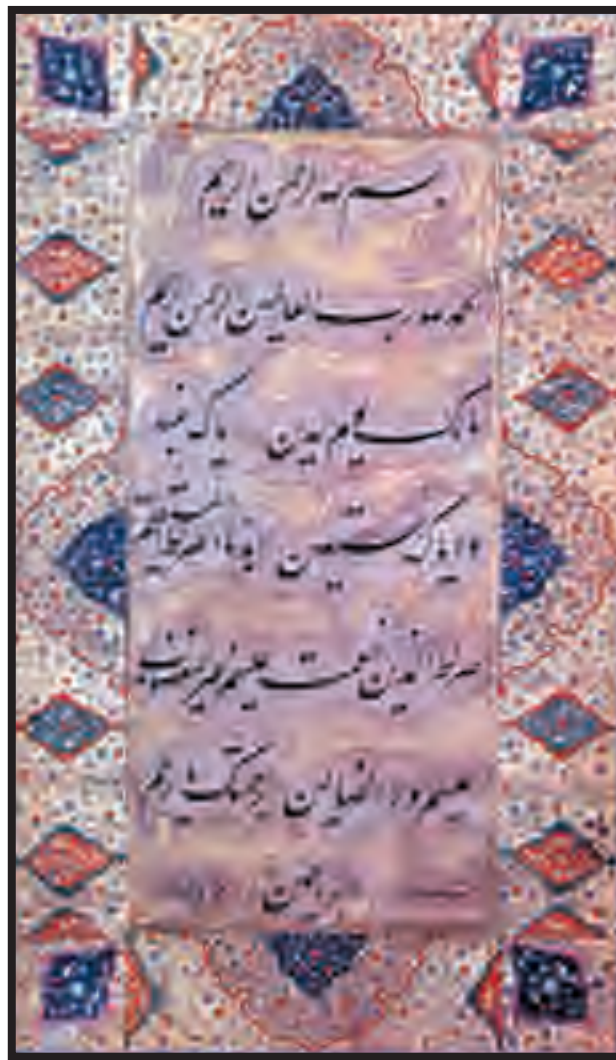 بسم الله الرحمن الرحیم
الحمد لله رب العالمین الرحمن الرحیم
مالک یوم الدین ایاک نعبد
و ایاک نستعین اهدنا الصراط المستقیم
صراط الذین انعمت علیهم غیر المغضوب
علیهم و لا الضالین برحمتک یا ارحم
الراحمین